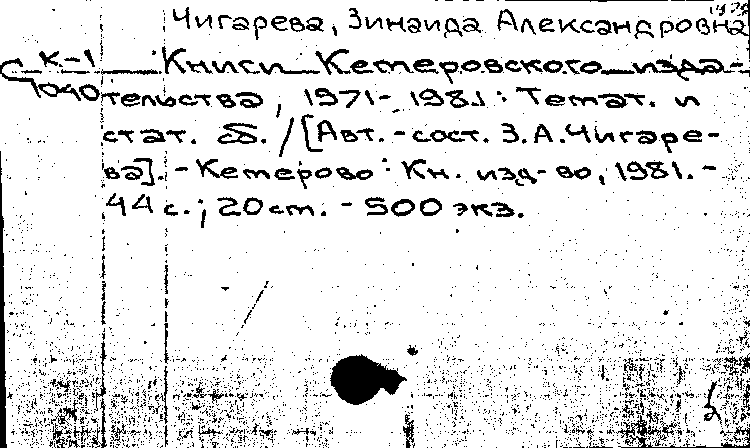 Чигарева, Зинаида Александровна
К-1 Книги Кемеровского изда-
7040 тельства, 1971-1981: Темат. и
стат. б. / [Авт.-сост. З.А.Чигаре-
ва]. - Кемерово: Кн. изд-во, 1981. -
44 с.; 20 см. - 500 экз.